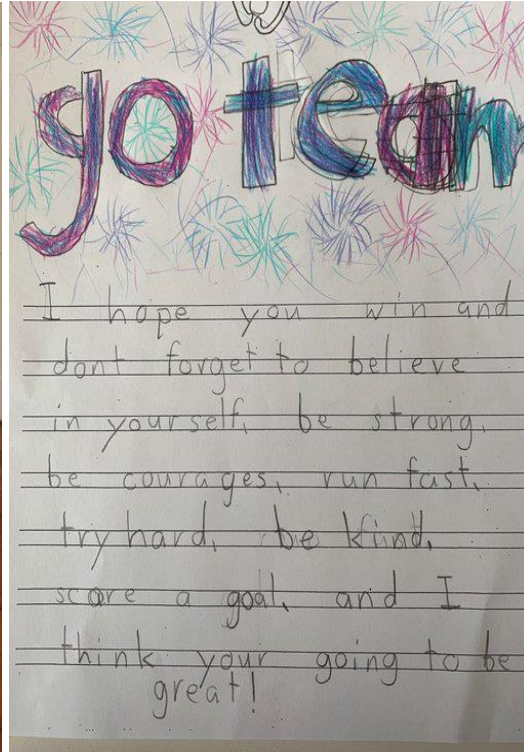 go team
I hope you win and
dont forget to believe
in yourself, be strong,
be courages, run fast,
try hard, be kind,
score a goal, and I
think your going to be
great!